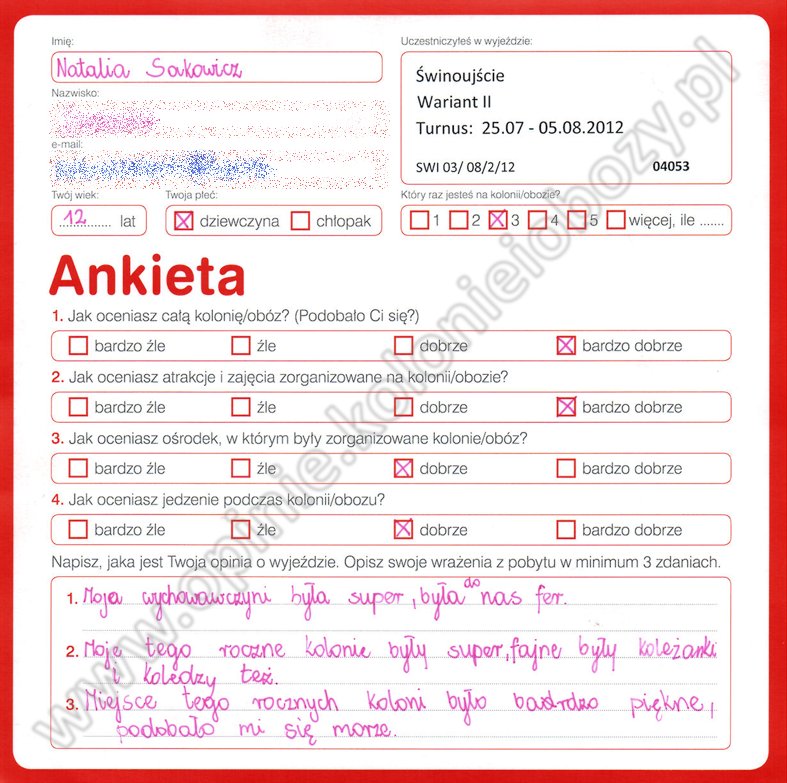 Imię:
Natalia Sakowicz
Nazwisko:
e-mail:
Twój wiek:
12 lat
Twoja płeć:
dziewczyna chłopak
Uczestniczyłeś w wyjeździe:
Świnoujście
Wariant II
Turnus: 25.07 - 05.08.2012
SWI 03/ 08/2/12 04053
Który raz jesteś na kolonii/obozie?
1 2 3 4 5 więcej, ile .......
Ankieta
1. Jak oceniasz całą kolonię/obóz? (Podobało Ci się?)
bardzo źle źle dobrze bardzo dobrze
2. Jak oceniasz atrakcje i zajęcia zorganizowane na kolonii/obozie?
bardzo źle źle dobrze bardzo dobrze
3. Jak oceniasz ośrodek, w którym były zorganizowane kolonie/obóz?
bardzo źle źle dobrze bardzo dobrze
4. Jak oceniasz jedzenie podczas kolonii/obozu?
bardzo źle źle dobrze bardzo dobrze
Napisz, jaka jest Twoja opinia o wyjeździe. Opisz swoje wrażenia z pobytu w minimum 3 zdaniach.
1. Moja wychowawczyni była super, była do nas fer.
2. Moje tego roczne kolonie były super, fajne były koleżanki
i koledzy też.
3. Miejsce tego rocznych koloni było bardzo piękne,
podobało mi się morze.
www.opinie.kolonieiobozy.pl